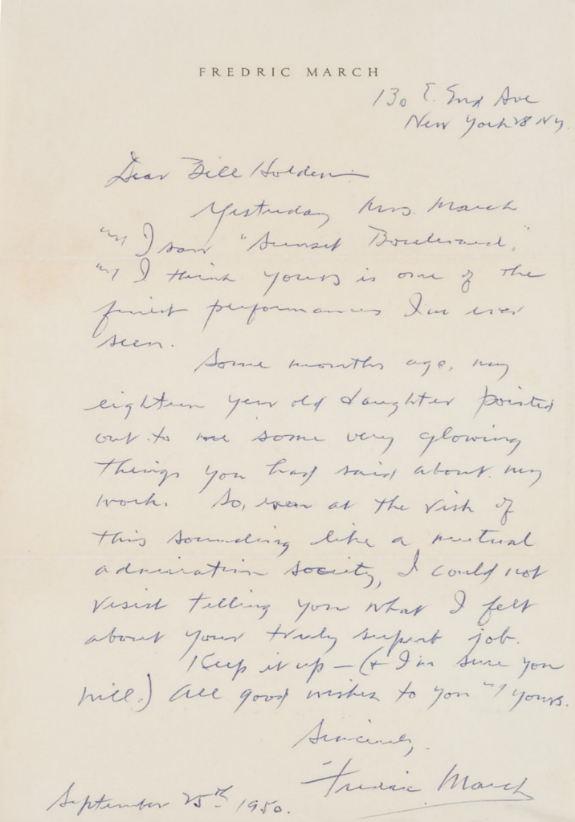 FREDRIC MARCH
130 E. End Ave
New York 28 NY.
Dear Bill Holden—
Yesterday Mrs. March
and I saw "Sunset Boulevard,"
and I think yours is one of the
finest performances I've ever
seen.
Some months ago, my
eighteen year old daughter pointed
out to me some very glowing
things you had said about my
work. So, even at the risk of
this sounding like a mutual
admiration society, I could not
resist telling you what I felt
about your truly superb job.
Keep it up — (& I'm sure you
will.) All good wishes to you and yours.
Sincerely,
Fredric March
September 25th 1950.